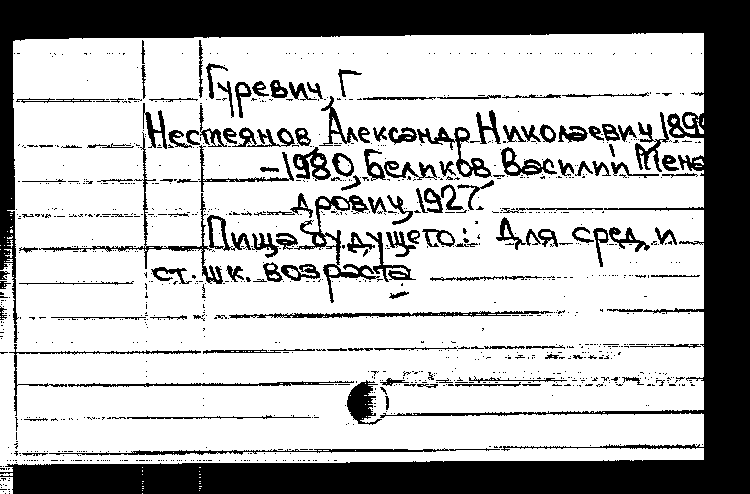 Гуревич, Г
Несмеянов Александр Николаевич 1899
-1980, Беликов Василий Менэ
дрович, 1927.
Пища будущего: Для сред, и
ст. шк. возраста